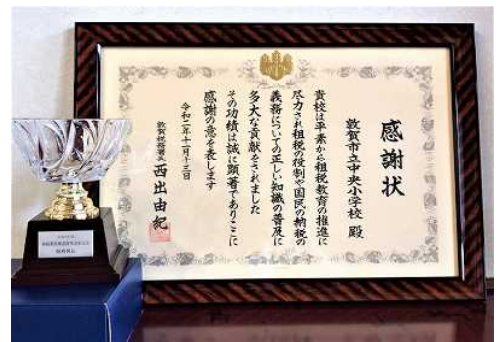 感謝状
敦賀市立中央小学校 殿
貴校は平素から租税教育の推進に
尽力され租税の役割や国民の納税の
義務についての正しい知識の普及に
多大な貢献をされました
その功績は誠に顕著でありここに
感謝の意を表します
令和二年十一月十三日
敦賀税務署長 西出由紀